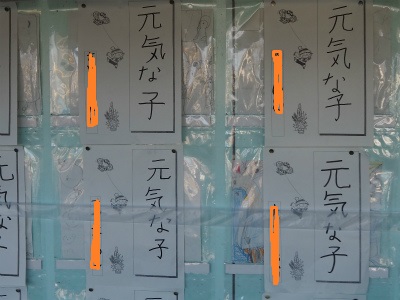 元気な子
元気な子
元気な子
元気な子
元気な子